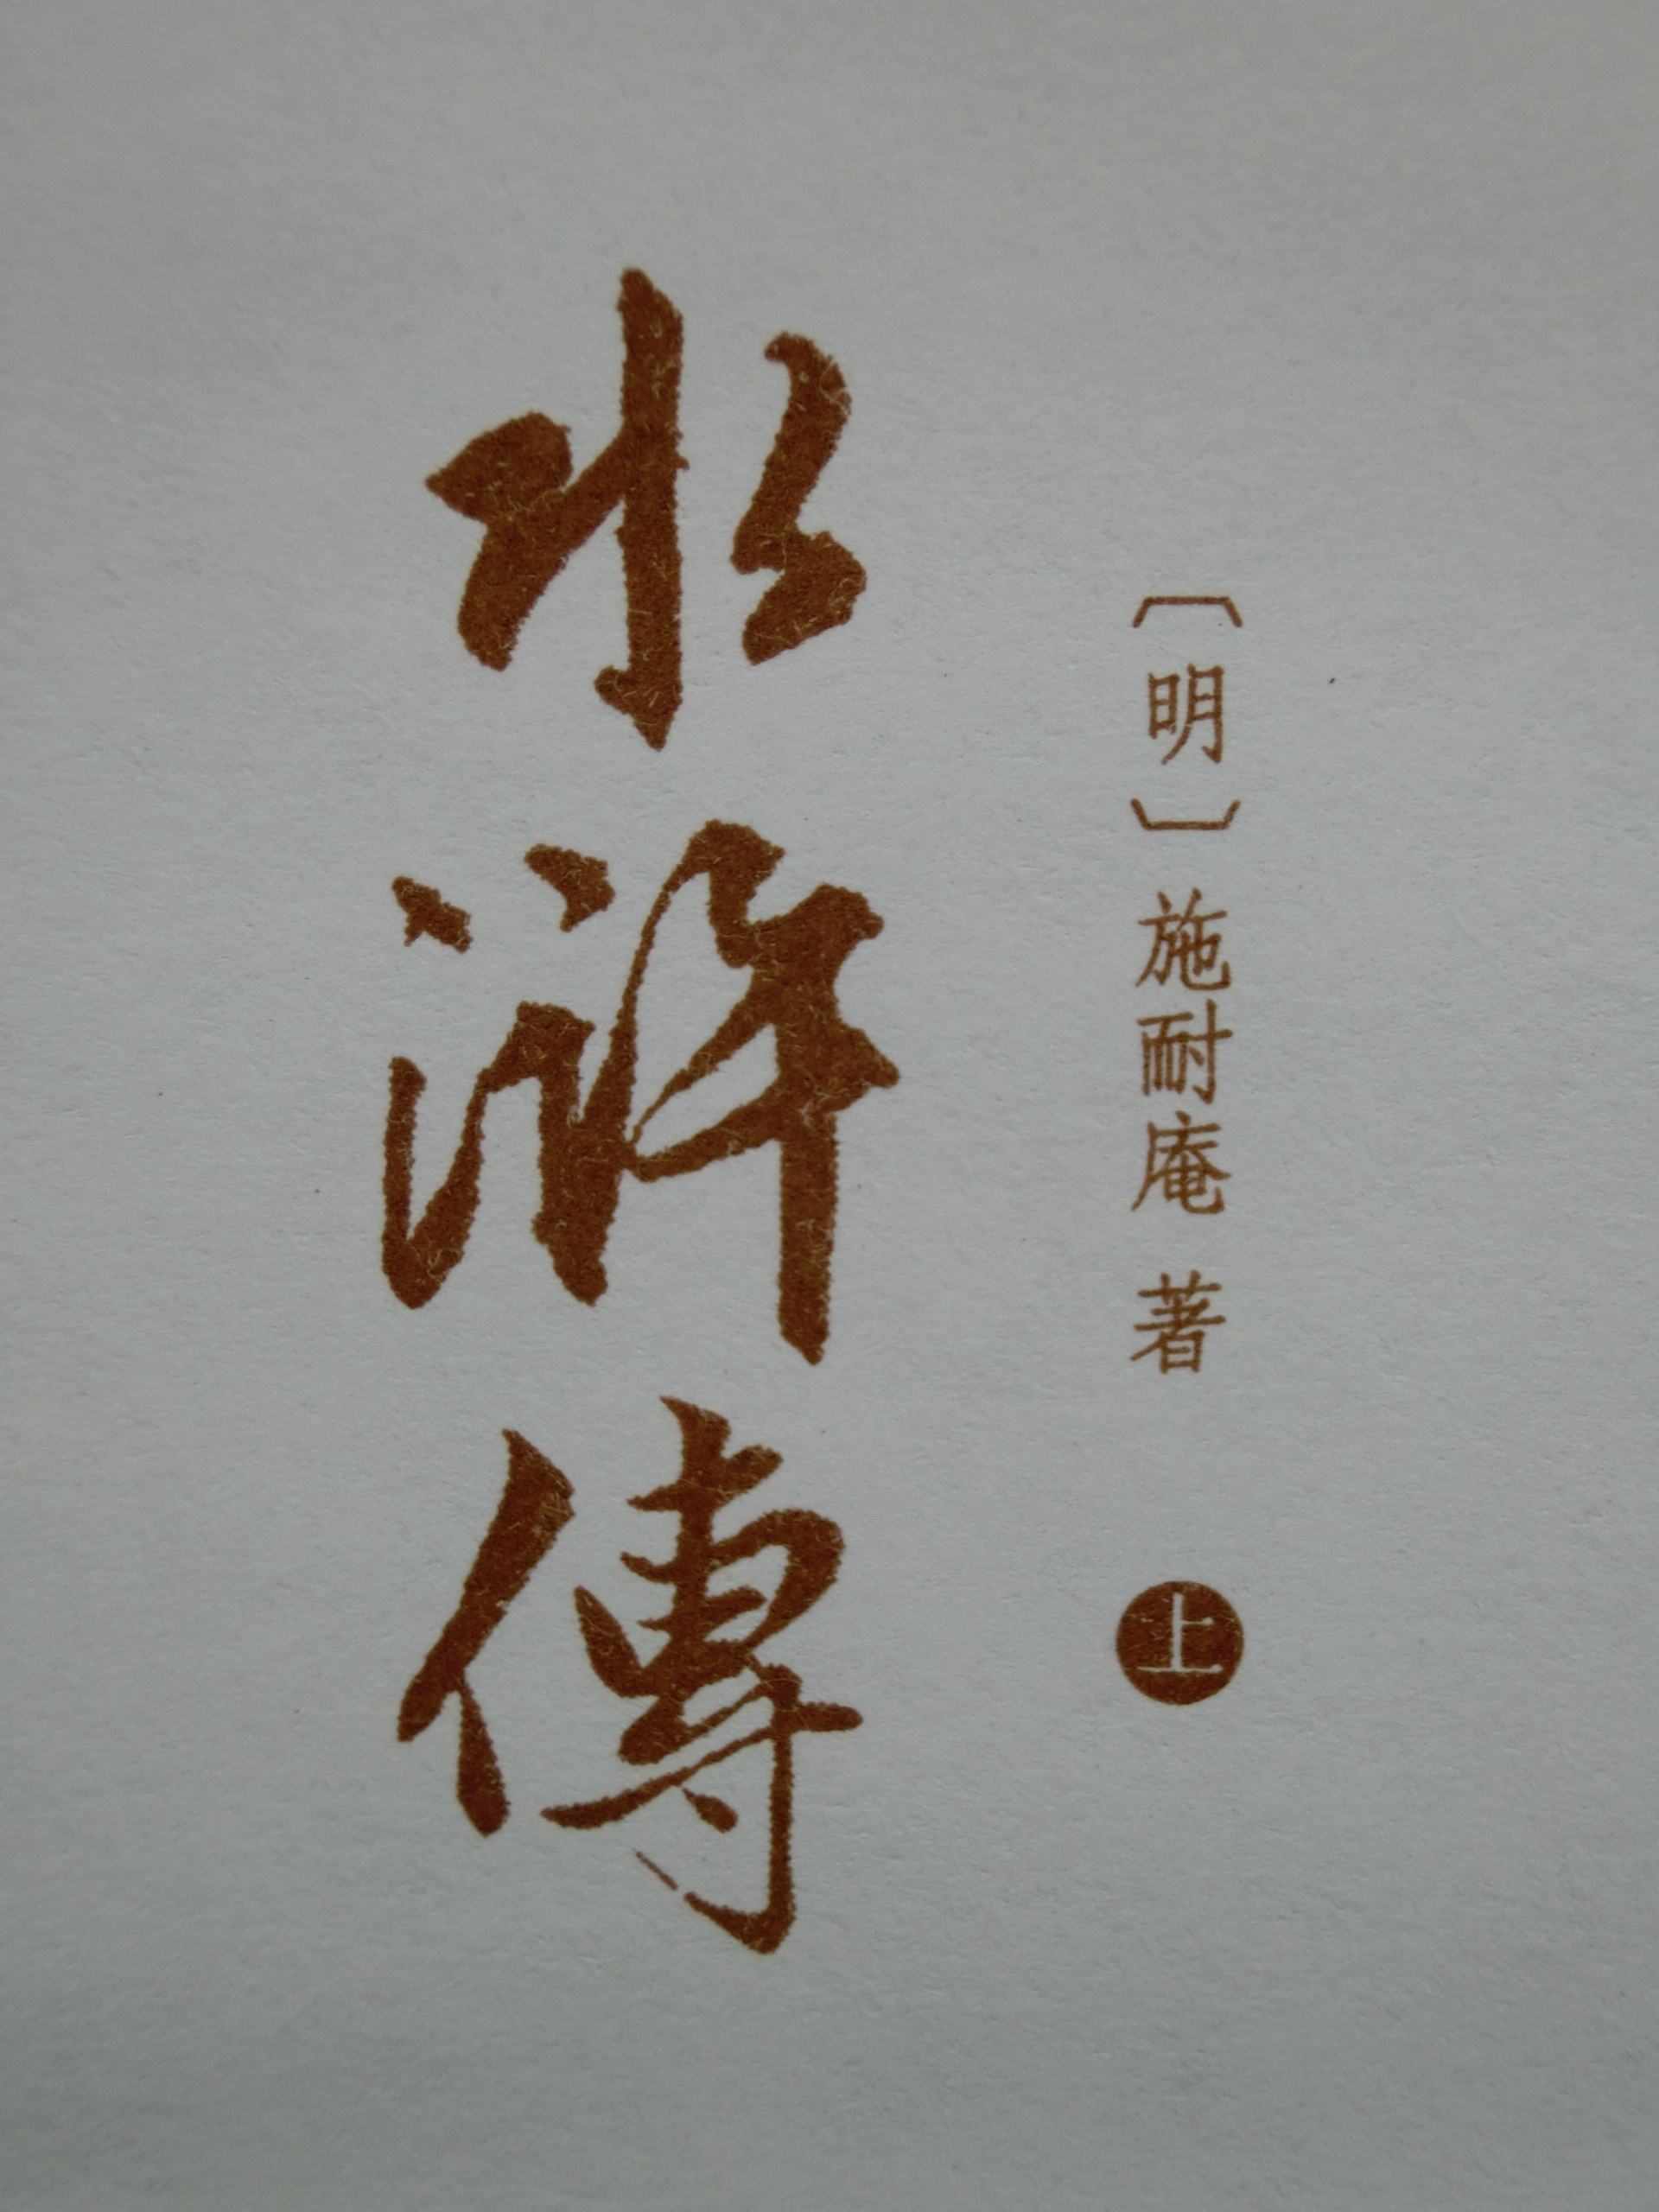 〔明〕施耐庵 著 上
水浒傳